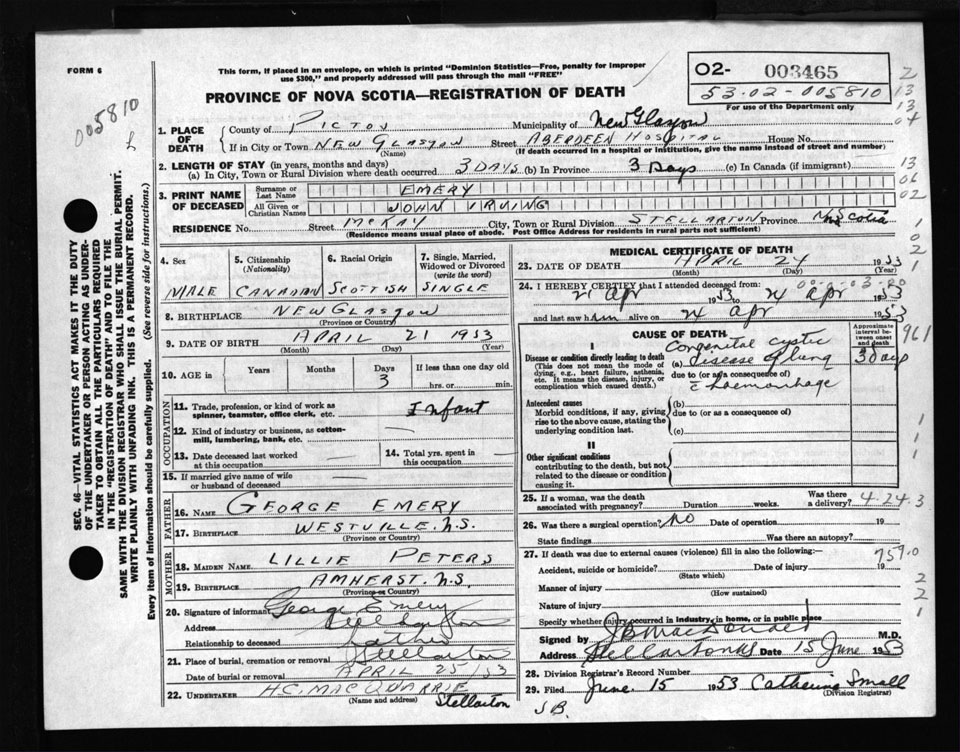 FORM 6
This form, if placed in an envelope, on which is printed "Dominion Statistics—Free, penalty for improper
use $300," and properly addressed will pass through the mail "FREE"
PROVINCE OF NOVA SCOTIA—REGISTRATION OF DEATH
O2- 003465
53-02-005810
For use of the Department only
005810
1. PLACE OF DEATH
County of PICTOU Municipality of New Glasgow
If in City or Town NEW GLASGOW Street ABERDEEN HOSPITAL House No.
(Name) (If death occurred in a hospital or institution, give the name instead of street and number)
2. LENGTH OF STAY (in years, months and days)
(a) In City, Town or Rural Division where death occurred 3 DAYS (b) In Province 3 Days (c) In Canada (if immigrant)
3. PRINT NAME OF DECEASED
Surname or Last Name EMERY
All Given or Christian Names JOHN IRVING
RESIDENCE No. Street McKAY City, Town or Rural Division STELLARTON Province N. Scotia
(Residence means usual place of abode. Post Office Address for residents in rural parts not sufficient)
4. Sex
MALE
5. Citizenship (Nationality)
CANADIAN
6. Racial Origin
SCOTTISH
7. Single, Married, Widowed or Divorced (write the word)
SINGLE
8. BIRTHPLACE NEW GLASGOW
(Province or Country)
9. DATE OF BIRTH APRIL 21 1953
(Month) (Day) (Year)
10. AGE in Years Months Days 3 If less than one day old
hrs. or min.
OCCUPATION
11. Trade, profession, or kind of work as spinner, teamster, office clerk, etc. Infant
12. Kind of industry or business, as cotton-mill, lumbering, bank, etc.
13. Date deceased last worked at this occupation
14. Total yrs. spent in this occupation
15. If married give name of wife or husband of deceased
FATHER
16. NAME GEORGE EMERY
17. BIRTHPLACE WESTVILLE, N.S.
(Province or Country)
MOTHER
18. MAIDEN NAME LILLIE PETERS
19. BIRTHPLACE AMHERST. N.S.
(Province or Country)
20. Signature of informant George Emery
Address Stellarton
Relationship to deceased father
21. Place of burial, cremation or removal Stellarton
Date of burial or removal APRIL 25/53
22. UNDERTAKER H.C. MACQUARRIE
(Name and address) Stellarton
MEDICAL CERTIFICATE OF DEATH
23. DATE OF DEATH APRIL 24 1953
(Month) (Day) (Year)
24. I HEREBY CERTIFY that I attended deceased from
21 Apr 1953 to 24 Apr 1953
and last saw him alive on 24 Apr 1953
CAUSE OF DEATH
Approximate interval between onset and death
I
Disease or condition directly leading to death
(This does not mean the mode of dying, e.g., heart failure, asthenia, etc. It means the disease, injury, or complication which caused death.)
(a) Congenital cystic disease of lung 3 Days
due to (or as a consequence of)
c haemorrhage
Antecedent causes
Morbid conditions, if any, giving rise to the above cause, stating the underlying condition last.
(b)
due to (or as a consequence of)
(c)
II
Other significant conditions
contributing to the death, but not related to the disease or condition causing it.
25. If a woman, was the death associated with pregnancy? Duration weeks. Was there a delivery? 4.24.3
26. Was there a surgical operation? No Date of operation 19
State findings Was there an autopsy?
27. If death was due to external causes (violence) fill in also the following:
Accident, suicide or homicide? Date of injury 19
(State which) 759.0
Manner of injury
(How sustained)
Nature of injury
Specify whether injury occurred in industry, in home, or in public place
Signed by J B MacDonald M.D.
Address Stellarton NS Date 15 June 1953
28. Division Registrar's Record Number
29. Filed June 15 1953 Catherine Small
(Division Registrar)
SEC. 46—VITAL STATISTICS ACT MAKES IT THE DUTY
OF THE UNDERTAKER OR PERSON ACTING AS UNDER-
TAKER TO OBTAIN ALL THE PARTICULARS REQUIRED
IN THE "REGISTRATION OF DEATH" AND TO FILE THE
SAME WITH THE DIVISION REGISTRAR WHO SHALL ISSUE THE BURIAL PERMIT.
WRITE PLAINLY WITH UNFADING INK. THIS IS A PERMANENT RECORD.
Every item of information should be carefully supplied. (See reverse side for instructions.)
2
13
13
04
13
06
02
1
0
2
1
961
1
1
1
2
2
1